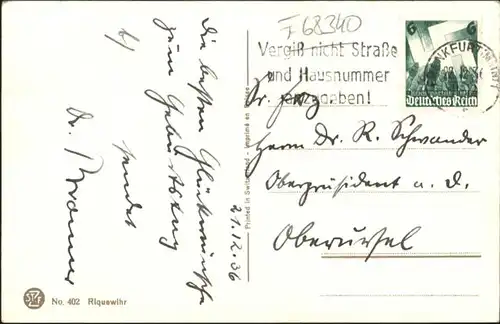 F 68340
Vergiß nicht Straße
und Hausnummer
anzugeben!
FRANKFURT
6 6
Deutsches Reich
Herrn Dr. R. Schwander
Oberpräsident a. D.
Oberursel
Die besten Glückwünsche
zum Geburtstag
sendet
Dr.
21.12.36
Printed in Switzerland - Imprimé en Suisse
No. 402 Riquewihr